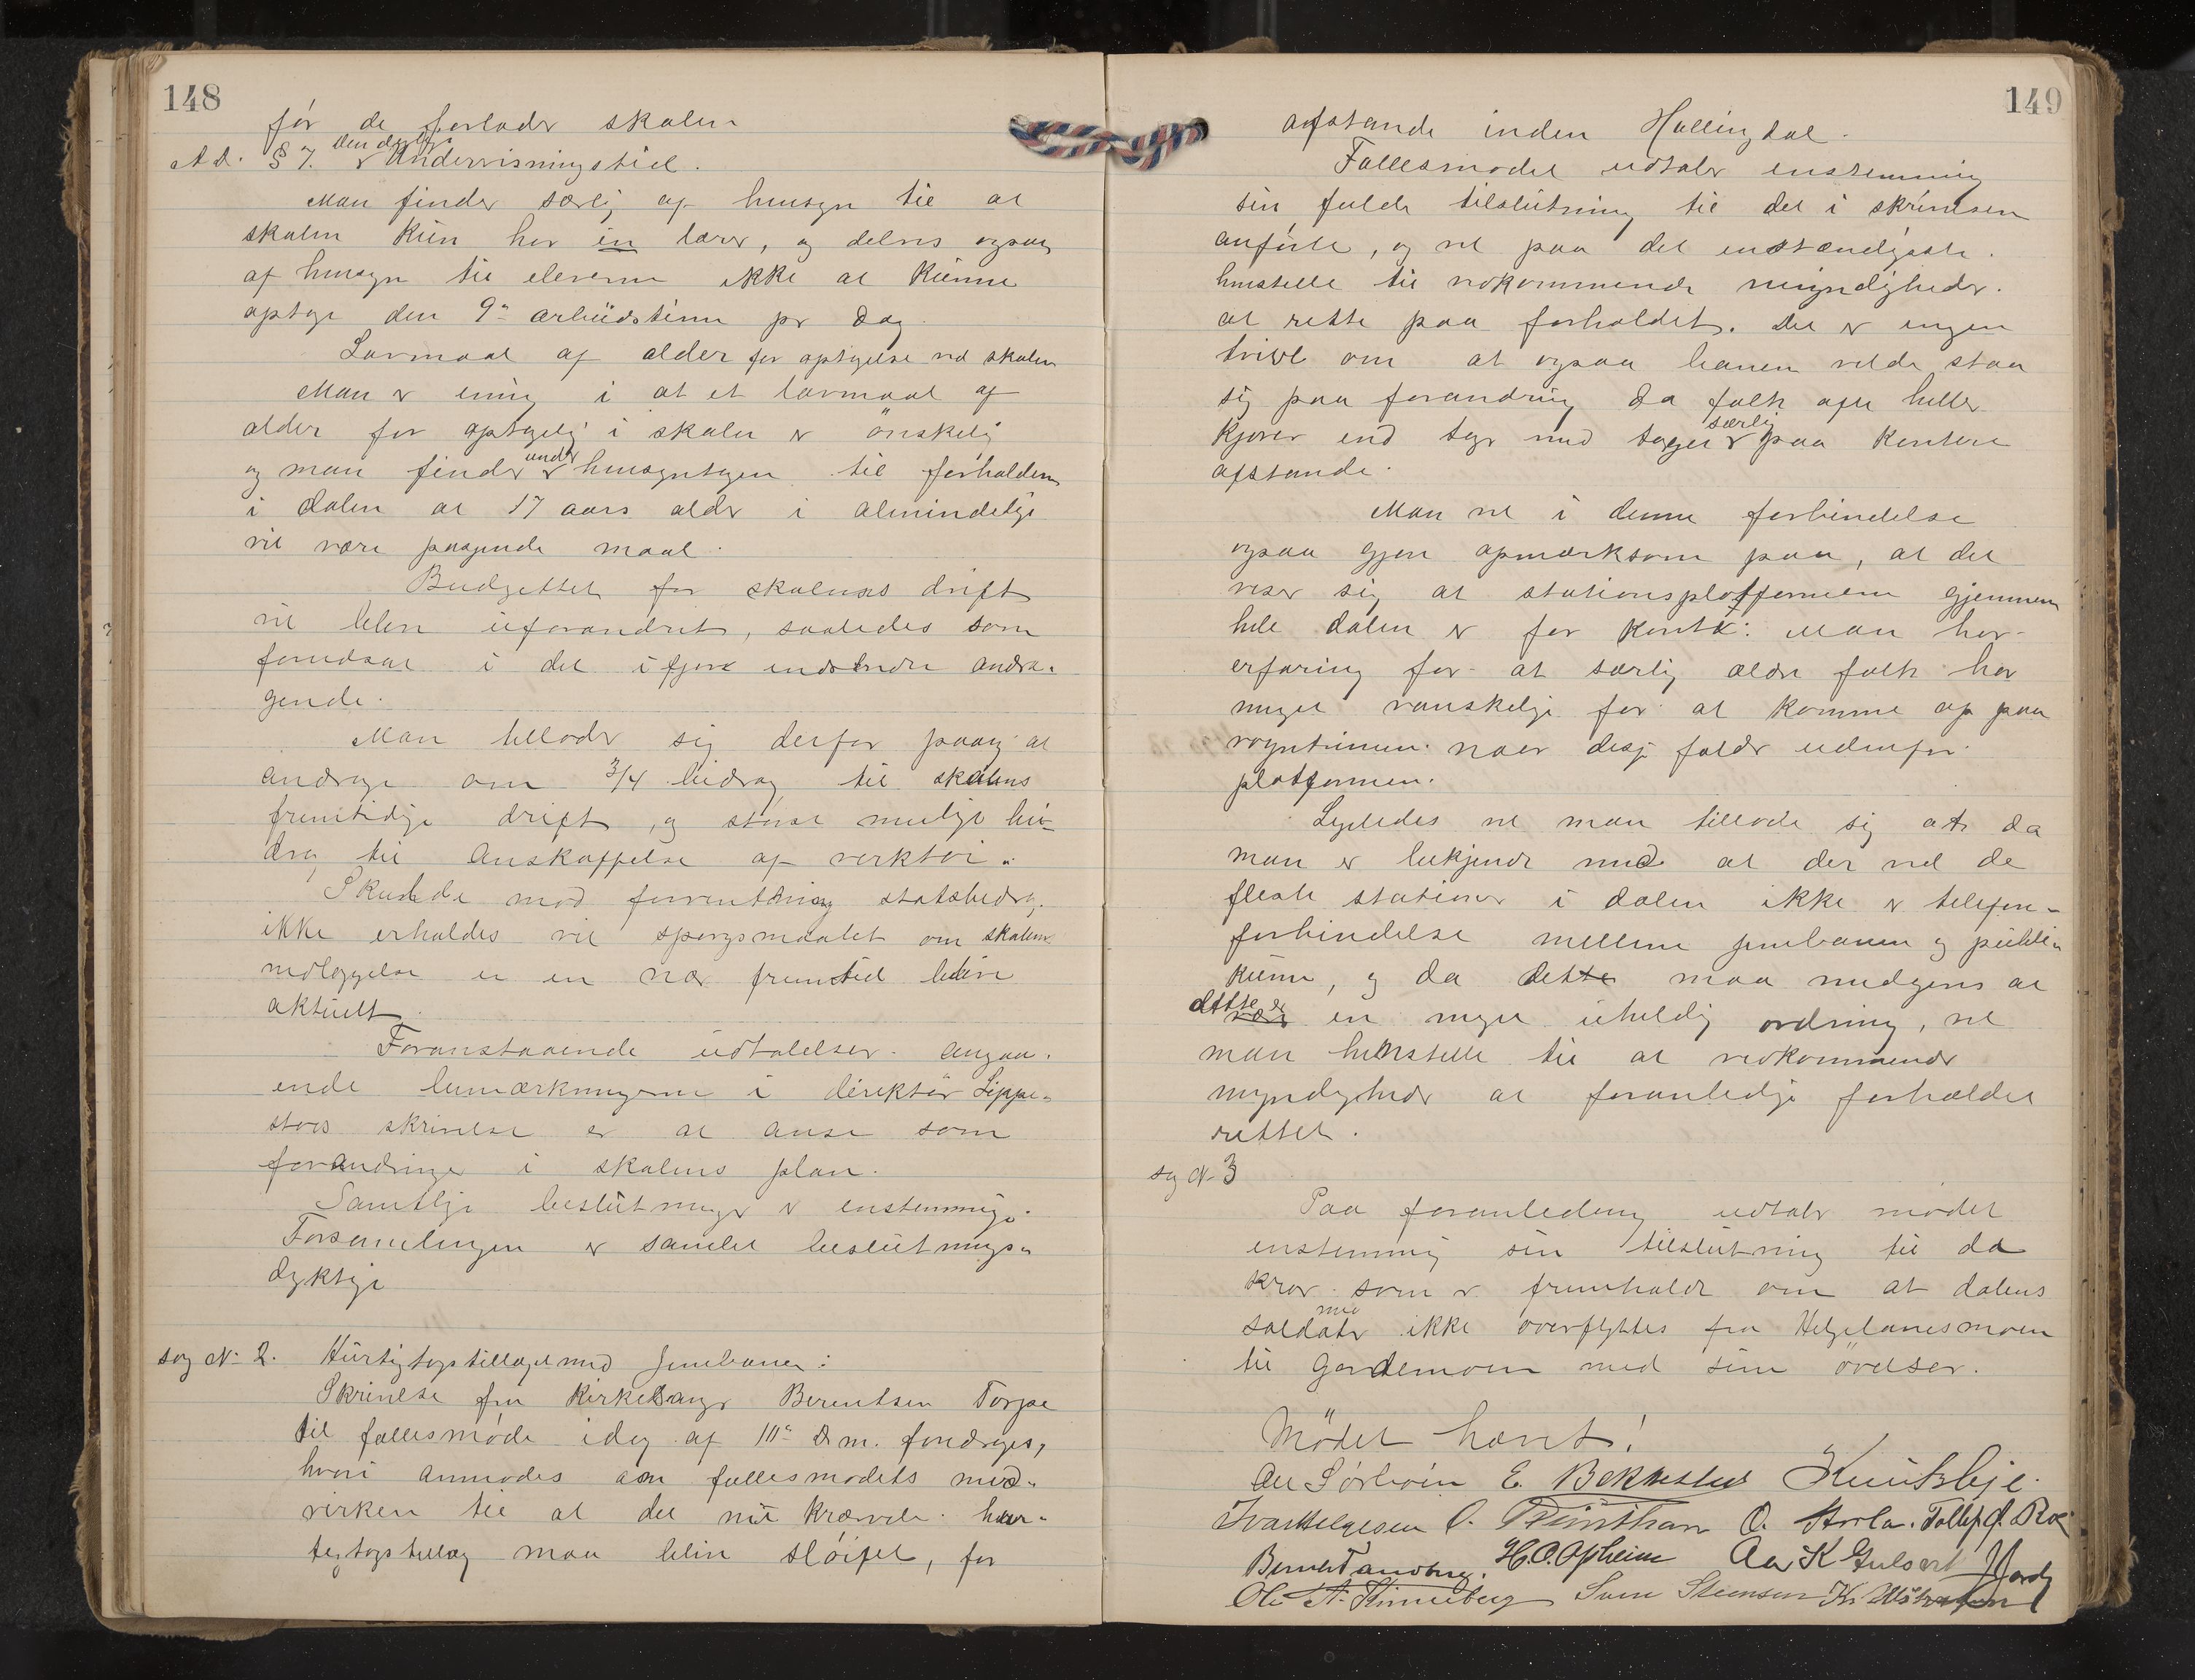 148
før de forlader skolen
Ad. § 7. den daglige Undervisningstid.
Man finder særlig af hensyn til at
skolen kun har én lærer, og delvis ogsaa
af hensyn til eleverne ikke at kunne
optage den 9de arbeidstime pr dag.
Lavmaal af alder for optagelse ved skolen
Man er enig i at et lavmaal af
alder for optagelse i skolen er ønskelig
og man finder under hensyntagen til forholdene
i dalen at 17 aars alder i almindelige
vil være passende maal.
Budgettet for skolens drift
vil blive uforandret, saaledes som
forudsat i det ifjor indsendte andra-
gende.
Man tillader sig derfor paany at
andrage om 3/4 bidrag til skolens
fremtidige drift, og størst mulige bi-
drag til anskaffelse af verktøi.
Skulde mod forventning statsbidrag
ikke erholdes vil spørgsmaalet om skolens
nedlæggelse i en nær fremtid blive
aktuelt.
Foranstaaende udtalelser angaa-
ende bemærkningerne i direktør Lippe-
stads skrivelse er at anse som
forandringer i skolens plan.
Samtlige beslutninger er enstemmige.
Forsamlingen er samlet beslutnings-
dygtige
sag N. 2. Hurtigtogstillæget med Jernbanen:
Skrivelse fra Kirkesanger Berentsen Torpe
til fællesmøde idag af 11te ds m. foredrages,
hvori anmodes om fællesmødets med-
virken til at det nu krævede hur-
tigtogstillæg maa blive sløifet, for
149
afstande inden Hallingdal.
Fællesmødet udtaler enstemmig
sin fulde tilslutning til det i skrivelsen
anførte, og vil paa det indstændigste
henstille til vedkommende myndigheder
at rette paa forholdet. Det er ingen
tvivl om at ogsaa banen vilde staa
sig paa forandring da folk ofte heller
kjører end tager med toget særlig paa kortere
afstande.
Man vil i denne forbindelse
ogsaa gjøre opmærksom paa, at det
viser sig at stationsplatformene gjennem
hele dalen er for korte. Man har
erfaring for at særlig ældre folk har
meget vanskelig for at komme op paa
vogntrinene naar disse falder udenfor
platformen.
Ligeledes vil man tillade sig at da
man er bekjendt med at der ved de
fleste stationer i dalen ikke er telefon-
forbindelse mellem jernbanen og publi-
kum, og da dette maa medgives at
dette er en meget uheldig ordning, vil
man henstille til at vedkommende
myndigheder at foranledige forholdet
rettet.
sag N. 3
Paa foranledning udtaler mødet
enstemmig sin tilslutning til det
krav som er fremholdt om at dalens
soldater maa ikke overflyttes fra Helgelandsmoen
til Gardemoen med sine øvelser.
Mødet hævet!
E. Bekkestad
Ivar Helgesen O. O.
H.O. Opheim
Ole A. Svein Steensen